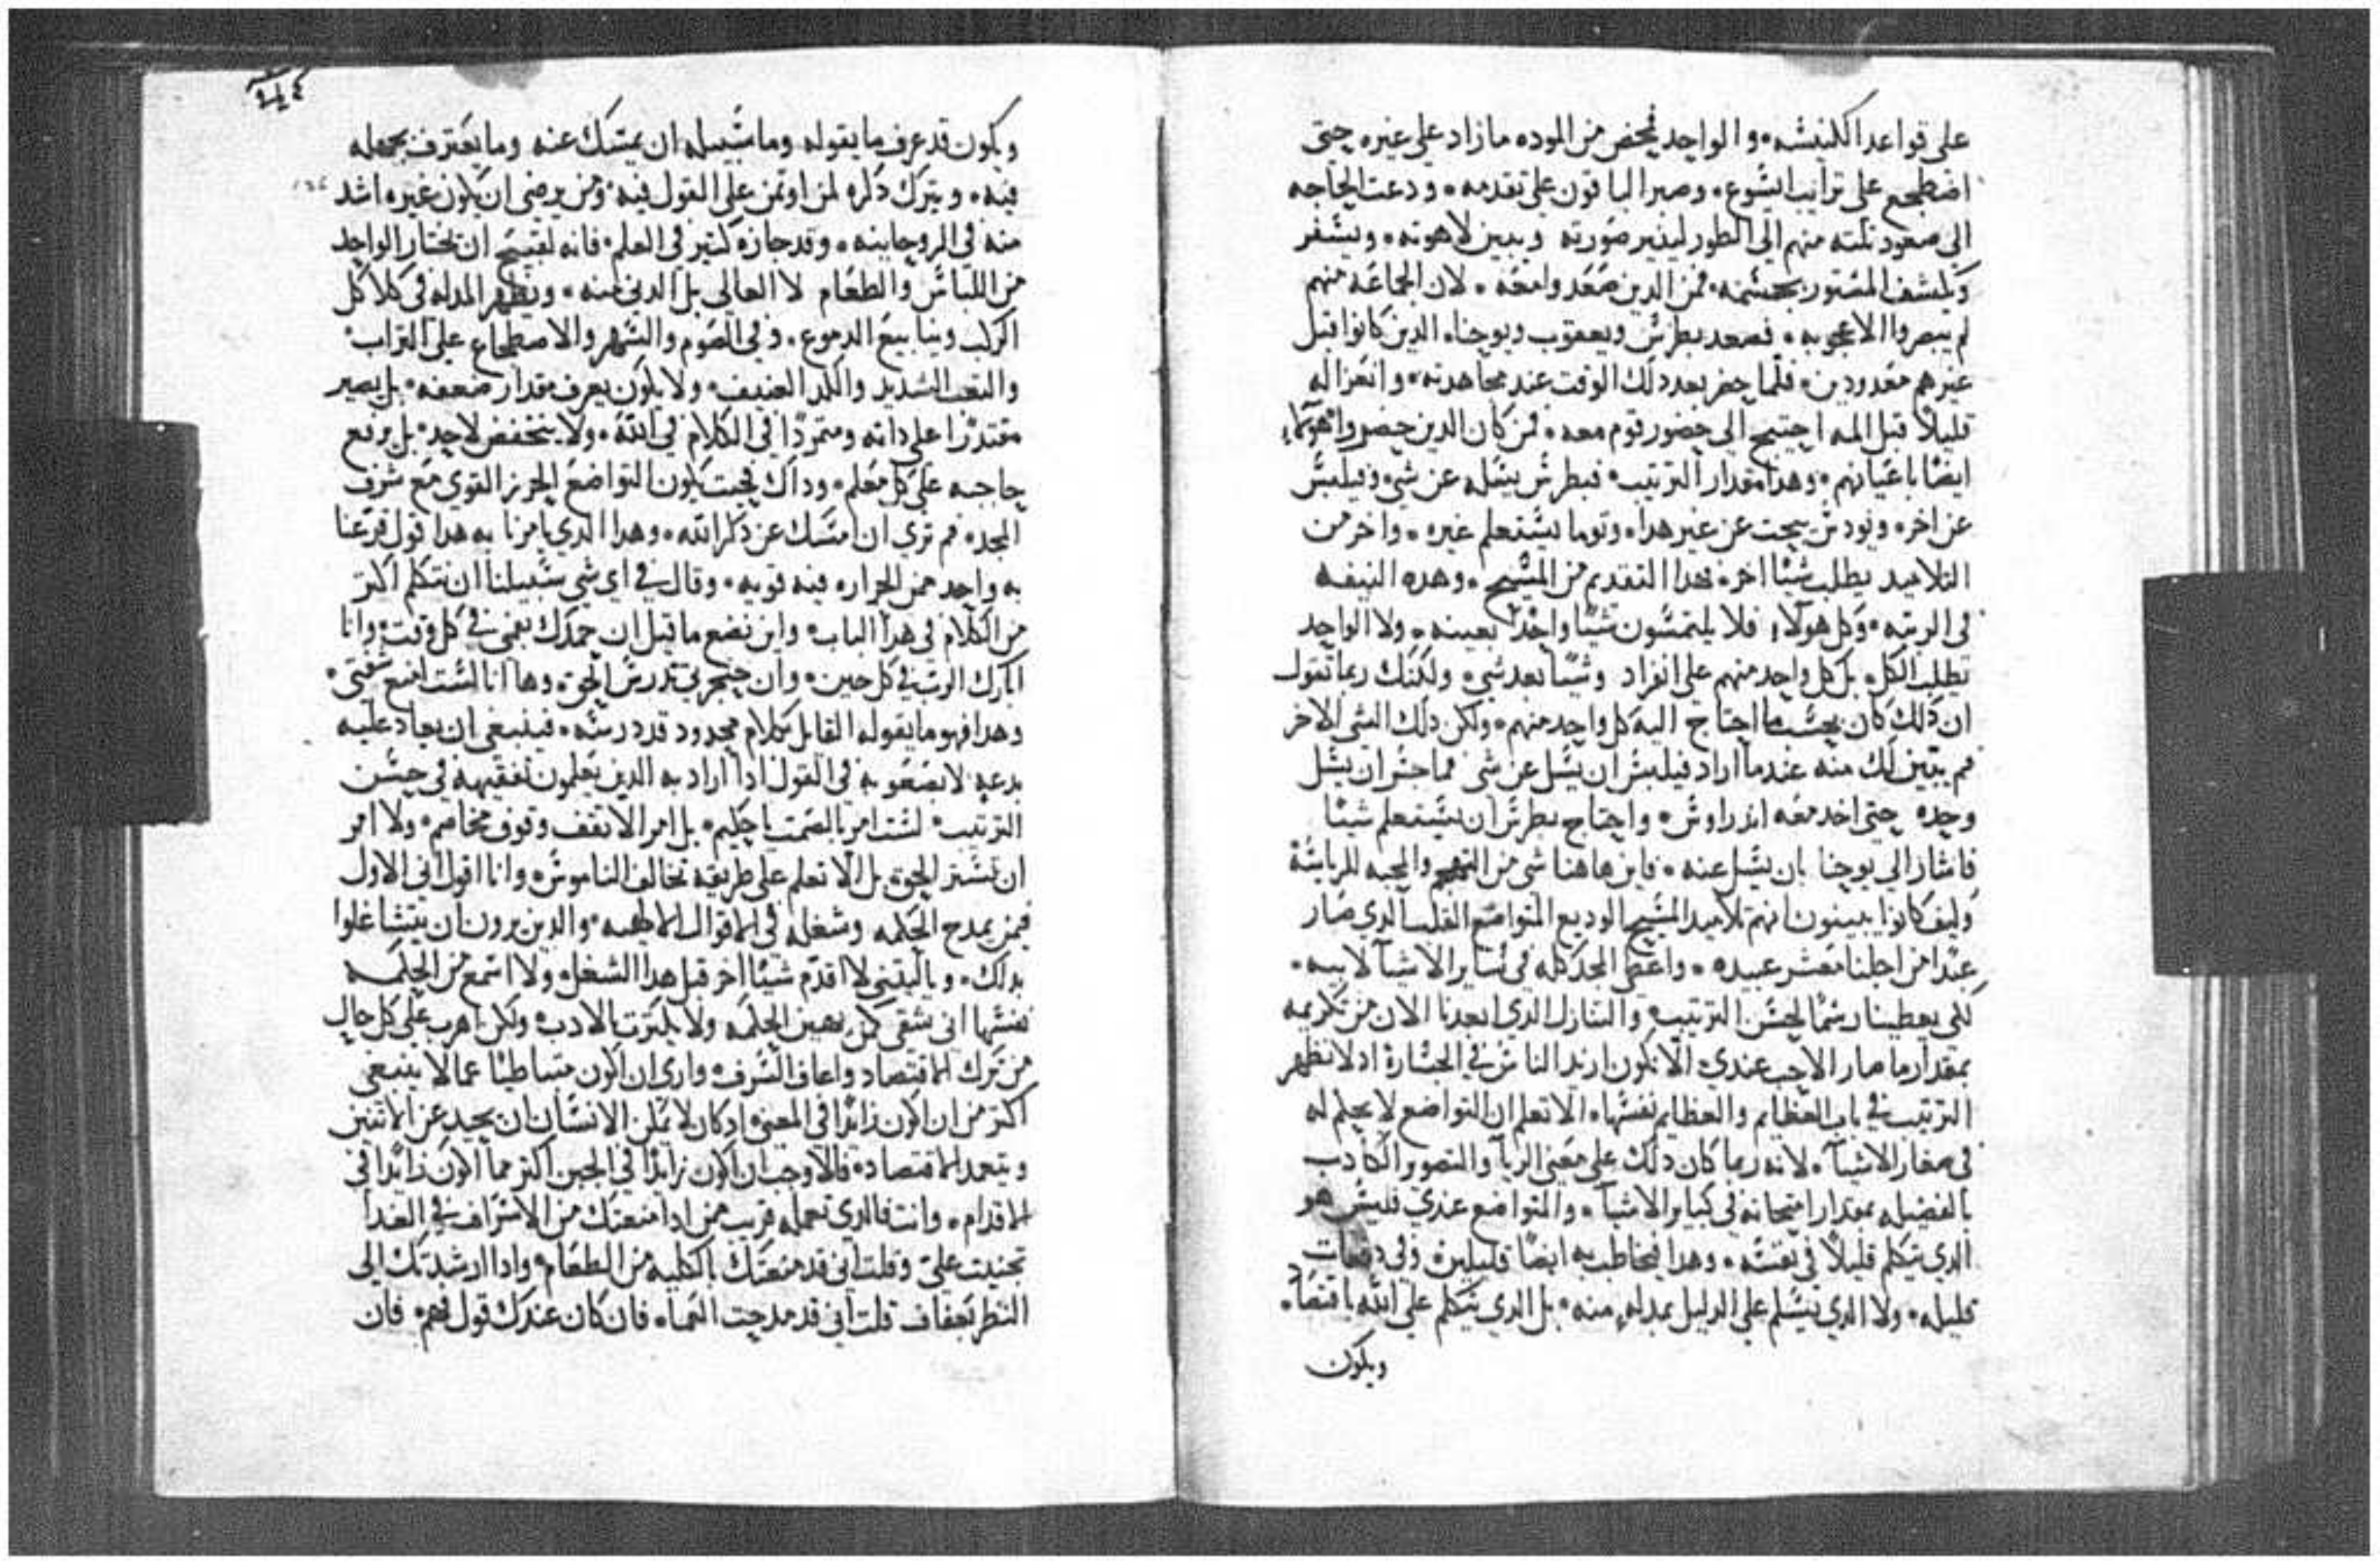 على قواعد الكنيسه۰ والواحد فمحض من الموده ما زاد على غيره حتى
اضطجع على ترايب ايسوع۰ وصبر الباقون على تقدمه۰ ودعت الحاجه
الى صعود ثلثه منهم الى الطور ليغير صورته ويبين لاهوته۰ ويسفر
ويكشف المستور بجسمه۰ فمن الدين صعدوا معه۰ لان الجماعه منهم
لم يبصروا الاعجوبه۰ فصعد بطرس ويعقوب ويوحنا۰ الدين كانوا قبل
غيرهم معدودين۰ فلما حضر بعد دلك الوقت عند مجاهدته۰ وانعزاله
قليلاً قبل المه احتيج الى حضور قوم معه۰ فمن كان الدين حضروا هولاء
ايضاً باعيانهم۰ وهدا مقدار الترتيب۰ فبطرس يسله عن شي۰ وفيلبس
عن اخر۰ ويودس يبحت عن غير هدا۰ وتوما يستعلم غيره۰ واخر من
التلاميد يطلب شياً اخر۰ فهدا التقديم من المسيح۰ وهده
في الرتبه۰ وكل هولاء فلا يلتمسون شياً واحداً بعينه۰ ولا الواحد
يطلب الكل۰ بل كل واحد منهم على انفراد وشياً بعد شي۰ ولكنك ربما تقول
ان دلك كان بحسب ما احتاج اليه كل واحد منهم۰ ولكن دلك الشي الاخر
فم يبين لك منه عندما اراد فيلبس ان يسل عن شي فما جسر ان يسل
وحده حتى اخد معه اندراوس۰ واحتاج بطرس ان يستعلم شياً
فاشار الى يوحنا بان يسل عنه۰ فاين هاهنا شي من التجهم والمحبه للرياسة
وكيف كانوا يبينون انهم تلاميد المسيح الوديع المتواضع القلب الدي صار
عبداً من اجلنا معشر عبيده۰ واعطى المجد كله في ساير الاشيآ لابيه۰
لكي يعطينا رسماً لحسن الترتيب۰ والتنازل الدي ابعدنا الان من تكريمه
بمقدار ما صار الاحب عندي۰ الا يكون ازيد الناس في الجسارة اد لا نظهر
الترتيب في باب العظايم والعظايم نفسها۰ الا تعلم ان التواضع لا يحكم له
في صغار الاشيآ۰ لانه ربما كان دلك على معنى الريآ والتصور الكادب
بالفضيله بمقدار امتحانه في كباير الاشيآ۰ والمتواضع عندي فليس هو
الدي يتكلم قليلاً في نفسه۰ وهدا فيخاطب به ايضاً قليلين۰ وفي دفعات
قليله۰ ولا الدي يسلم على الدليل بمدله منه۰ بل الدي يتكلم على الله باقتصاد۰
ويكون
ويكون قد عرف ما يقوله وما سبيله ان يمسك عنه وما يعترف بجهله
فيه۰ ويترك دكره لمن اوتمن على القول فيه۰ ومن يرضى ان يكون غيره اشد
منه في الروحانيه۰ وقد حازه كثير في العلم۰ فانه لقبيح ان يختار الواحد
من اللباس والطعام لا العالي بل الدني منه۰ ويظهر المدله في كلاكل
الركب وينابيع الدموع۰ وفي الصوم والسهر والاضطجاع على التراب۰
والتعب الشديد والكد العنيف۰ ولا يكون يعرف مقدار ضعفه۰ بل يصير
مقتدراً على داته ومتمرداً في الكلام في الله۰ ولا ينخفض لاحد۰ بل يرفع
حاجبه على كل معلم۰ وداك فبحيت يكون التواضع الحرز القوي مع شرف
المجد۰ فم ترى ان امسك عن دكر الله۰ وهدا الدي يامرنا به هدا قول
به واحد ممن الحراره فيه قويه۰ وقال في اي شي سبيلنا ان نتكلم اكتر
من الكلام في هدا الباب۰ واين نضع ما قيل ان حمدك بفمي في كل وقت۰ وانا
ابارك الرب في كل حين۰ وان حنجرتي تدرس الحق۰ وها انا لست امنع شفتي۰
وهدا فهو ما يقوله القايل بكلام محدود قد درسه۰ فينبغي ان يجاد عليه
بدعه لا بصعوبة في القول ادا اراد به الدين تعلمون تفقيهه في حسن
الترتيب۰ لست امر بالصمت يا حكيم۰ بل امر الا تقف وقوف مخاصم۰ ولا امر
ان تستر الحق۰ بل الا تعلم على طريقه تخالف الناموس۰ وانا اقول اني الاول
فيمن يمدح الحكمه وشغله في الاقوال الالهيه۰ والدين يرون ان يتشاغلوا
بدلك۰ ويا ليتني لا اقدم شياً اخر قبل هدا الشغل۰ ولا اسمع من الحكمه
نفسها اني شقي كل يهين الحكمه ولا يكترت بالادب۰ ولكن اهرب على كل حال
من ترك الاقتصاد واعاف السرف۰ وارى ان اكون متباطياً عما لا ينبغي
اكتر من ان اكون زايداً في المعنى۰ ادكان لا يمكن الانسان ان يحيد عن الاتنين
ويتعمد الاقتصاد۰ فالاوجب ان اكون زايداً في الجبن اكتر مما اكون زايداً في
الاقدام۰ وانت فالدي تعمله قريب ممن ادا منعتك من الاسراف في الغدا
تجنيت علي وقلت اني قد منعتك بالكليه من الطعام۰ وادا ارشدتك الى
النظر بعفاف قلت اني قد مدحت العما۰ فان كان عندك قول فهم۰ فان